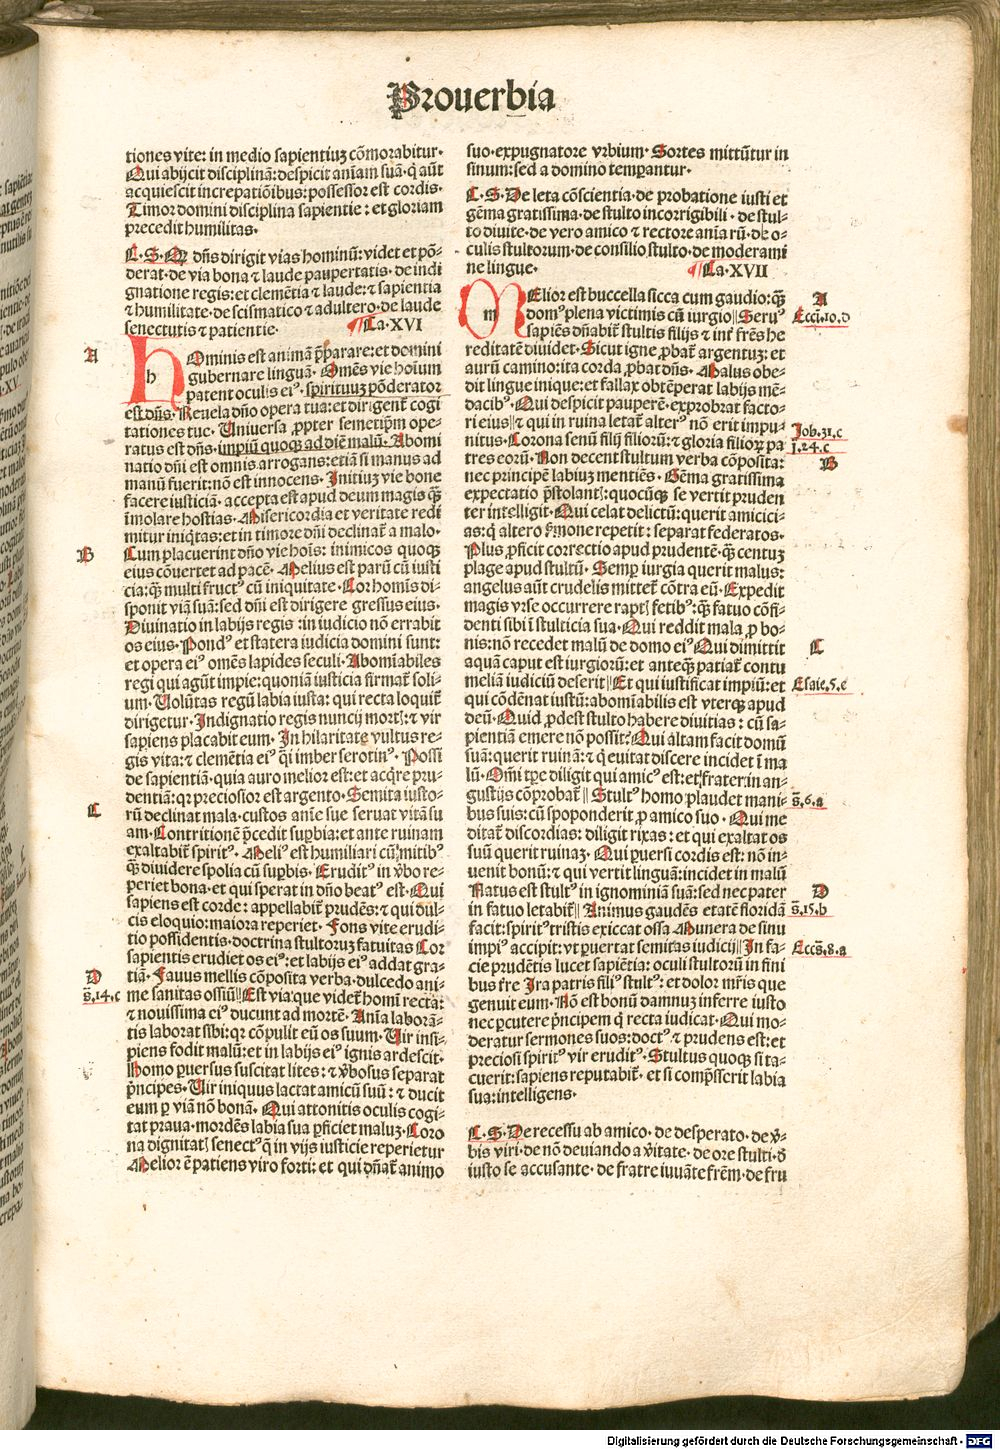 Prouerbia
tiones vite: in medio sapientiuꝫ cõmorabitur.
Qui abijcit disciplinã: despicit aniam suã. q̃ aũt
acquiescit increpatiõibus: possessor est cordis.
Timor domini disciplina sapientie: et gloriam
precedit humilitas.
C. S. Q dñs dirigit vias hominũ: videt et põ-
derat. de via bona ⁊ laude paupertatis. de indi
gnatione regis: et clemẽtia ⁊ laude: ⁊ sapientia
⁊ humilitate. de scismatico ⁊ adultero. de laude
senectutis ⁊ patientie. ¶ Ca. XVI
A
hOminis est animã p̃parare: et domini
gubernare linguã. Omẽs vie hoium
patent oculis ei⁹. spirituuꝫ põderator
est dñs. Reuela dño opera tua: et dirigent̃ cogi
tationes tue. Uniuersa ꝓpter semetip̃m ope-
ratus est dñs. impiũ quoqꝫ ad diẽ malũ. Abomi
natio dñi est omnis arrogans: etiã si manus ad
manũ fuerit: nõ est innocens. Initiuꝫ vie bone
facere iusticiã. accepta est apud deum magis q̃ꝫ
ĩmolare hostias. Misericordia et veritate redi
mitur iniq̃tas: et in timore dñi declinat̃ a malo.
B
Cum placuerint dño vie hoĩs: inimicos quoqꝫ
eius cõuertet ad pacẽ. Melius est parũ cũ iusti
cia: q̃ꝫ multi fruct⁹ cũ iniquitate. Cor homĩs di-
sponit viã suã: sed dñi est dirigere gressus eius.
Diuinatio in labijs regis: in iudicio nõ errabit
os eius. Pond⁹ et statera iudicia domini sunt:
et opera ei⁹ omẽs lapides seculi. Abomĩabiles
regi qui agũt impie: quoniã iusticia firmat̃ soli-
um. Uolũtas regũ labia iusta: qui recta loquit̃
dirigetur. Indignatio regis nuncij mortꝭ: ⁊ vir
sapiens placabit eum. In hilaritate vultus re-
gis vita: ⁊ clemẽtia ei⁹ q̃si imber serotin⁹. Possi
de sapientiã. quia auro melior est: et acq̃re pru-
dentiã: qꝛ preciosior est argento. Semita iusto-
C
rũ declinat mala. custos anĩe sue seruat vitã su
am. Contritionẽ p̃cedit supbia: et ante ruinam
exaltabit̃ spirit⁹. Meli⁹ est humiliari cũ mitib⁹
q̃ꝫ diuidere spolia cũ supbis. Erudit⁹ in v̾bo re-
periet bona. et qui sperat in dño beat⁹ est. Qui
sapiens est corde: appellabit̃ prudẽs: ⁊ qui dul-
cis eloquio: maiora reperiet. Fons vite erudi-
tio possidentis. doctrina stultoruꝫ fatuitas Cor
sapientis erudiet os ei⁹: et labijs ei⁹ addat gra-
D
tiã. Fauus mellis cõposita verba. dulcedo ani-
s̃.14.c
me sanitas ossiũ‖ Est via que videt̃ homĩ recta:
⁊ nouissima ei⁹ ducunt ad mortẽ. Anĩa laborã-
tis laborat sibi: qꝛ cõpulit eũ os suum. Uir insi-
piens fodit malũ: et in labijs ei⁹ ignis ardescit.
Homo puersus suscitat lites: ⁊ v̾bosus separat
p̃ncipes. Uir iniquus lactat amicũ suũ: ⁊ ducit
eum p viã nõ bonã. Qui attonitis oculis cogi-
tat praua. mordẽs labia sua ꝑficiet maluꝫ. Coro
na dignitatꝭ senect⁹ q̃ in vijs iusticie reperietur
Melior ẽ patiens viro forti: et qui dñat̃ animo
suo. expugnatore vrbium. Sortes mittũtur in
sinum: sed a domino temperantur.
C. S. De leta cõscientia. de probatione iusti et
gẽma gratissima. de stulto incorrigibili. de stul-
to diuite. de vero amico ⁊ rectore anĩarũ. de o-
culis stultorum. de consilio stulto. de moderami
ne lingue. ¶ Ca. XVII
A
Eccl̃i.10.d
mElior est buccella sicca cum gaudio: q̃ꝫ
dom⁹ plena victimis cũ iurgio‖ Seru⁹
sapiẽs dñabit̃ stultis filijs ⁊ int̃ frẽs he
reditatẽ diuidet. Sicut igne ꝓbat̃ argentuꝫ: et
aurũ camino: ita corda ꝓbat dñs. Malus obe-
dit lingue inique: et fallax obtẽperat labijs mẽ-
dacib⁹. Qui despicit pauperẽ. exprobrat facto-
ri eius‖ ⁊ qui in ruina letat̃ alteri⁹ nõ erit impu-
Job.31.c
nitus. Corona senũ filij filiorũ: ⁊ gloria filioꝝ pa
j.24.c
tres eorũ. Non decent stultum verba cõposita:
B
nec principẽ labiuꝫ mentiẽs. Gẽma gratissima
expectatio p̃stolantꝭ: quocũqꝫ se vertit pruden
ter intelligit. Qui celat delictũ: querit amicici-
as: q̃ altero s̾mone repetit: separat federatos.
Plus ꝓficit correctio apud prudentẽ. q̃ꝫ centuꝫ
plage apud stultũ. Semp iurgia querit malus:
angelus aũt crudelis mittet̃ cõtra eũ. Expedit
magis vrse occurrere raptꝭ fetib⁹: q̃ꝫ fatuo cõfi-
denti sibi ĩ stulticia sua. Qui reddit mala ꝓ bo-
nis: nõ recedet malũ de domo ei⁹ Qui dimittit
C
aquã caput est iurgiorũ: et anteqꝫ patiat̃ contu
meliã iudiciũ deserit‖ Et qui iustificat impiũ: et
Esaie.5.e
qui cõdẽnat iustũ: abomĩabilis est vterqꝫ apud
deũ. Quid ꝓdest stulto habere diuitias: cũ sa-
pientiã emere nõ possit: Qui altam facit domũ
suã: querit ruinã: ⁊ q̃ euitat discere incidet ĩ ma
lũ. Om̃i tꝑe diligit qui amic⁹ est: et frater in an-
gustijs cõprobat̃‖ Stult⁹ homo plaudet mani-
s̃.6.a
bus suis: cũ spoponderit ꝓ amico suo. Qui me
ditat̃ discordias: diligit rixas: et qui exaltat os
suũ querit ruinaꝫ. Qui puersi cordis est: nõ in-
uenit bonũ: ⁊ qui vertit linguã: incidet in malũ
D
Natus est stult⁹ in ignominiã suã: sed nec pater
in fatuo letabit̃‖ Animus gaudẽs etatẽ floridã
s̃.15.b
facit: spirit⁹ tristis exiccat ossa Munera de sinu
impi⁹ accipit: vt puertat semitas iudicij‖ In fa-
Eccl̃s.8.a
cie prudẽtis lucet sapiẽtia: oculi stultorũ in fini
bus t̾re Ira patris fili⁹ stult⁹: et dolor mr̃is que
genuit eum. Nõ est bonũ damnuꝫ inferre iusto
nec pcutere p̃ncipem q̃ recta iudicat. Qui mo-
deratur sermones suos: doct⁹ ⁊ prudens est: et
preciosi spirit⁹ vir erudit⁹. Stultus quoqꝫ si ta-
cuerit: sapiens reputabit̃. et si comp̃sserit labia
sua: intelligens.
C. S. De recessu ab amico. de desperato. de v̾-
bis viri. de nõ deuiando a v̾itate. de ore stulti. d̾
iusto se accusante. de fratre iuuãte frẽm. de fru
Digitalisierung gefördert durch die Deutsche Forschungsgemeinschaft - DFG